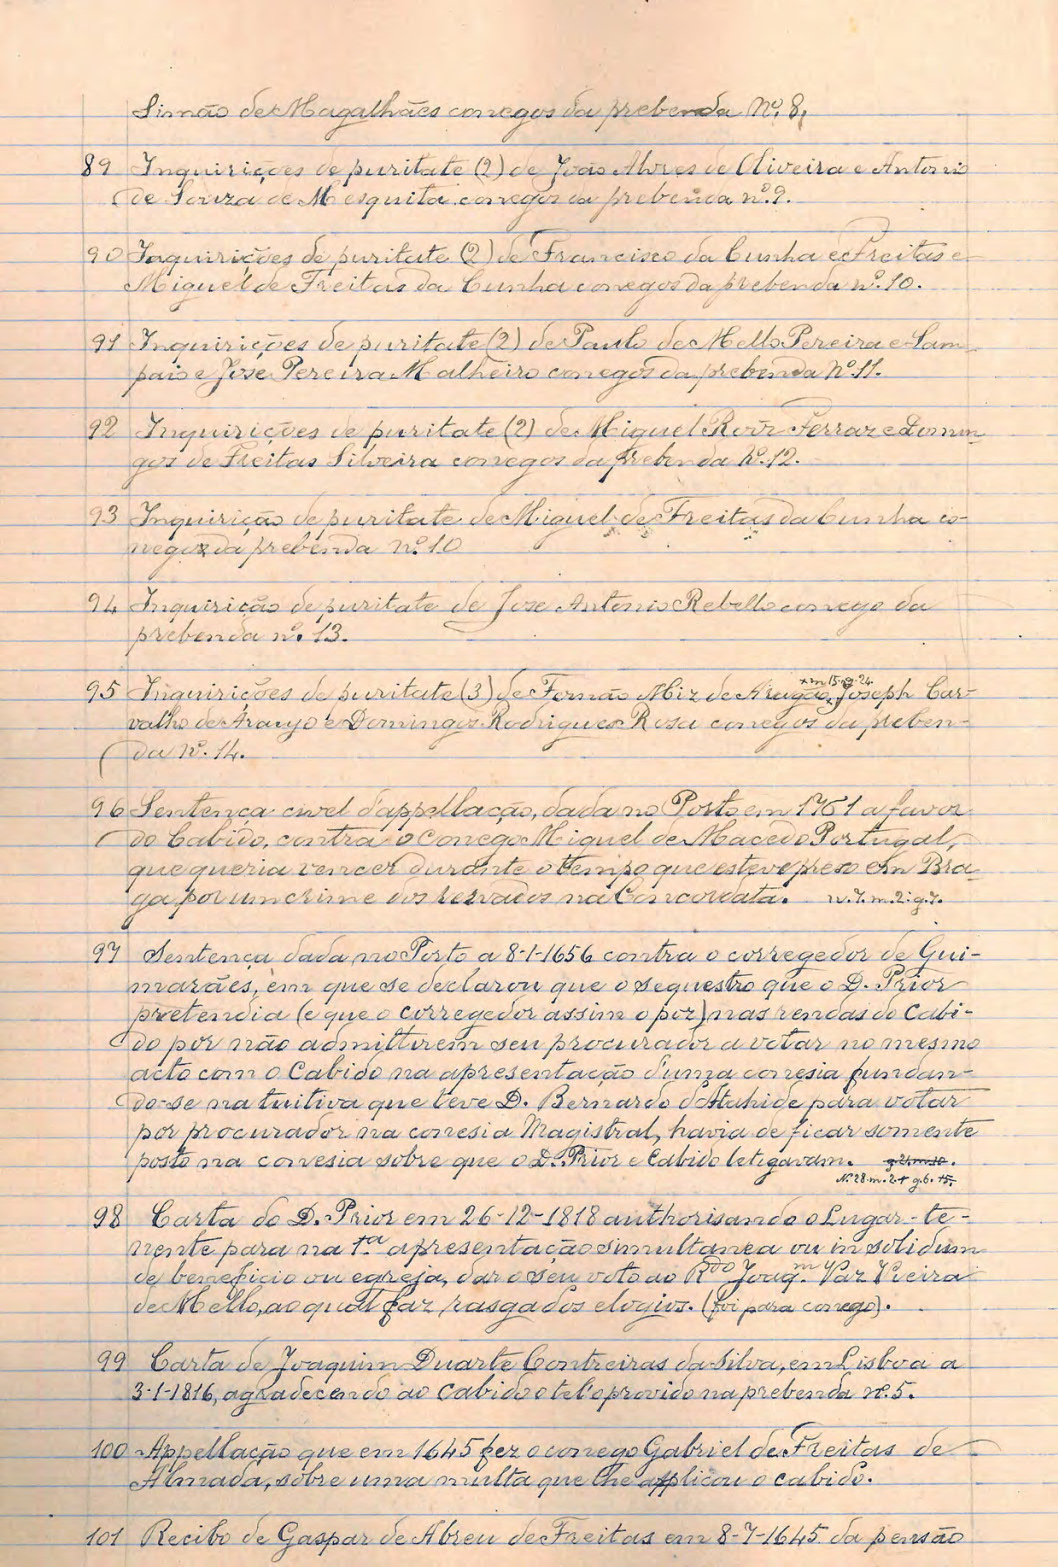 Simão de Magalhães conegos da prebenda Nº. 8,
89 Inquirições de puritate (2) de João Alvres de Oliveira e Antonio
de Souza de Mesquita conegos da prebenda nº. 9.
90 Inquirições de puritate (2) de Francisco da Cunha e Freitas e
Miguel de Freitas da Cunha conegos da prebenda nº. 10.
91 Inquirições de puritate (2) de Paulo de Mello Pereira e Sam-
paio e Jose Pereira Malheiro conegos da prebenda Nº 11.
92 Inquirições de puritate (2) de Miguel Roiz Ferraz e Domin-
gos de Freitas Silveira conegos da prebenda Nº. 12.
93 Inquirição de puritate de Miguel de Freitas da Cunha co-
nego da prebenda nº. 10
94 Inquirição de puritate de Jose Antonio Rebello conego da
prebenda nº. 13.
95 Inquirições de puritate (3) de Fernão Miz de Aragão, Joseph Car-
valho de Araujo e Domingos Rodrigues Rosa conegos da preben-
da Nº. 14.
96 Sentença civel d'appellação, dada no Porto em 1761 a favor
do Cabido, contra o Conego Miguel de Macedo Portugal,
que queria vencer durante o tempo que esteve preso em Bra-
ga por um crime dos rezervados na Concordata. n. 7. m. 2. g. 7.
97 Sentença dada no Porto a 8-1-1656 contra o corregedor de Gui-
marães, em que se declarou que o sequestro que o D. Prior
pretendia (e que o corregedor assim o poz) nas rendas do Cabi-
do por não admittirem seu procurador a votar no mesmo
acto com o Cabido na apresentação d'uma conesia fundan-
do-se na tuitiva que teve D. Bernardo d'Atahide para votar
por procurador na conesia Magistral, havia de ficar somente
posto na conesia sobre que o D. Prior e Cabido letigavam.
Nº. 28 m. 2+ g. 6. 15.
98 Carta do D. Prior em 26-12-1818 authorisando o Lugar-te-
nente para na 1.ª apresentação simultanea ou in solidum
de beneficio ou egreja, dar o seu voto ao Rdo Joaqm. Vaz Vieira
de Mello, ao qual faz rasgados elogios. (foi para conego).
99 Carta de Joaquim Duarte Contreiras da Silva, em Lisboa a
3-1-1816, agradecendo ao Cabido o tel'o provido na prebenda nº. 5.
100 Appellação que em 1645 fez o conego Gabriel de Freitas de
Almada, sobre uma multa que lhe applicou o cabido.
101 Recibo de Gaspar de Abreu de Freitas em 8-7-1645 da pensão